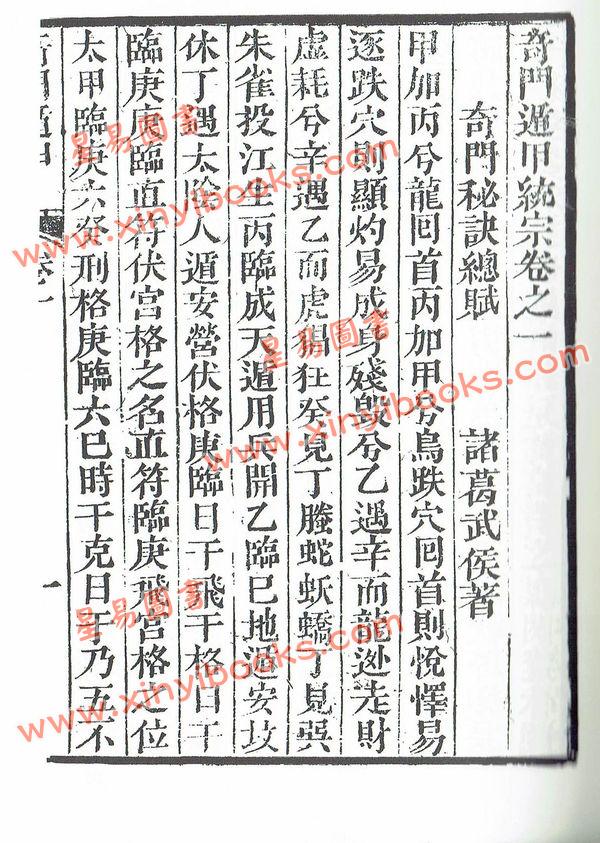 奇門遁甲統宗卷之一
奇門秘訣總賦　諸葛武侯著
甲加丙兮龍回首丙加甲兮鳥跌穴回首則悅懌易
逐跌穴則顯灼易成身殘毀兮乙遇辛而龍逃走財
虛耗兮辛遇乙而虎猖狂癸見丁螣蛇妖蟜丁見癸
朱雀投江生丙臨戊天遁用兵開乙臨巳地遁安坟
休丁遇太陰人遁安營伏格庚臨日干飛干格日干
臨庚庚臨直符伏宮格之名直符臨庚飛宮格之位
太甲臨庚六癸刑格庚臨六巳時干克日干乃五不
奇門遁甲　卷一　一
星易圖書
www.xinyibooks.com
星易圖書
www.xinyibooks.com
星易圖書
www.xinyibooks.com